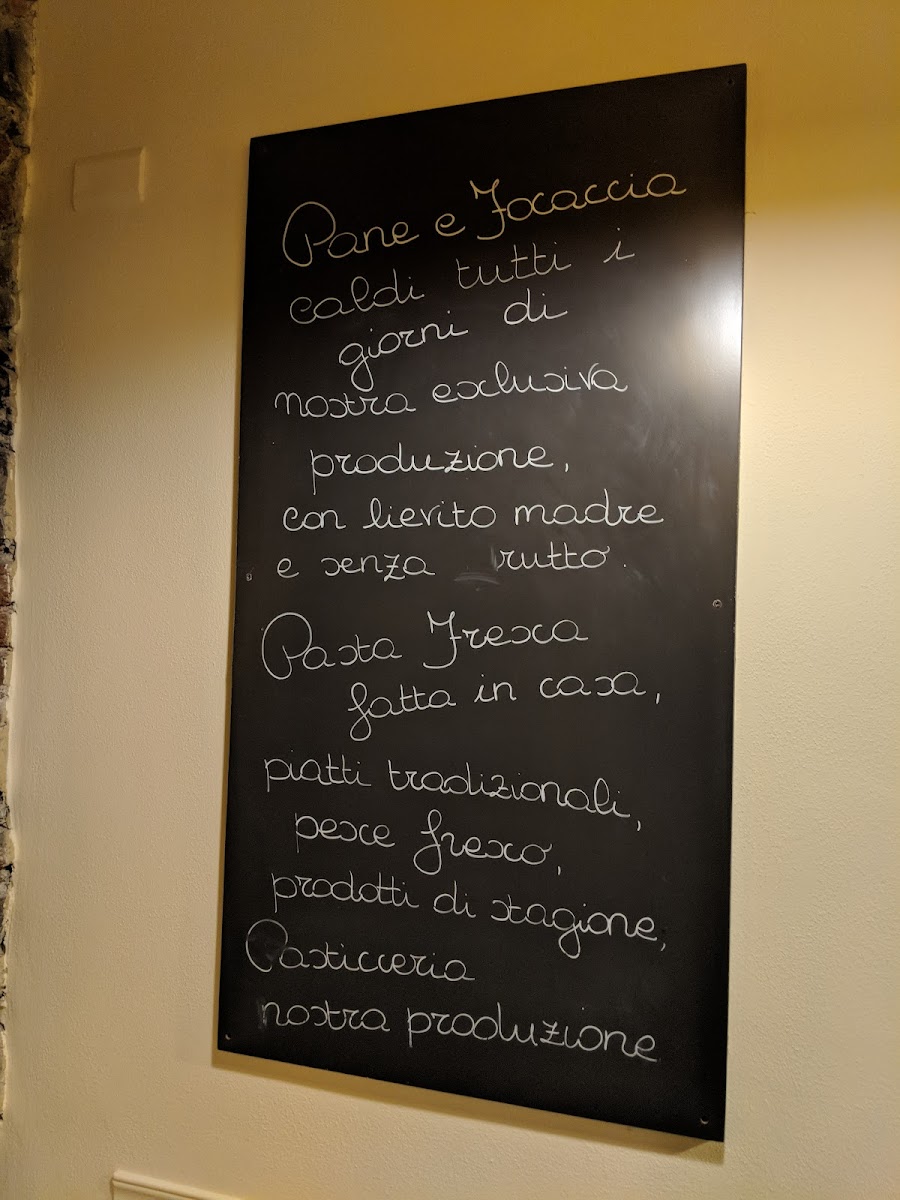 Pane e Focaccia
caldi tutti i
giorni di
nostra esclusiva
produzione,
con lievito madre
e senza rutto.
Pasta Fresca
fatta in casa,
piatti tradizionali,
pesce fresco,
prodotti di stagione,
Pasticceria
nostra produzione